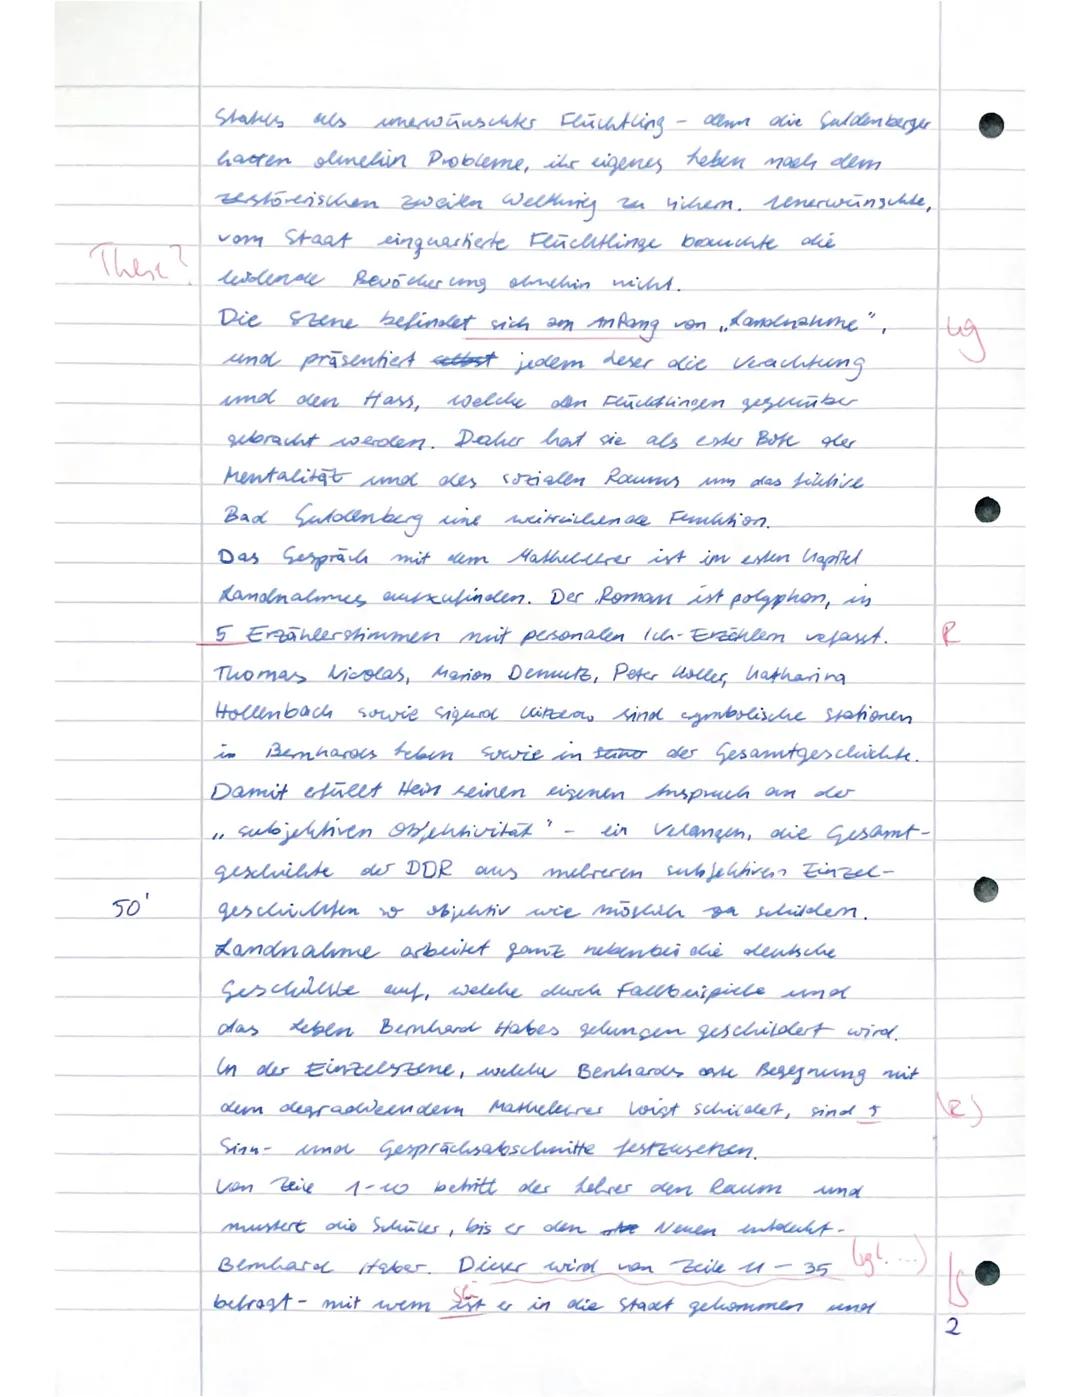 Staates als unerwünschter Flüchtling – denn die Guldenberger
hatten ohnehin Probleme, ihr eigenes Leben nach dem
zerstörerischen zweiten Weltkrieg zu sichern. Unerwünschte,
vom Staat einquartierte Flüchtlinge brauchte die
These?
leidende Bevölkerung ohnehin nicht.
Die Szene befindet sich am Anfang von „Landnahme",
ug
und präsentiert selbst jedem Leser die Verachtung
und den Hass, welche den Flüchtlingen gegenüber
gebracht werden. Daher hat sie als erster Bote der
Mentalität und des sozialen Raums um das fiktive
Bad Guldenberg eine weitreichende Funktion.
Das Gespräch mit dem Mathelehrer ist im ersten Kapitel
Landnahmes aufzufinden. Der Roman ist polyphon, in
5 Erzählerstimmen mit personalen Ich-Erzählern verfasst.
R
Thomas Nicolas, Marion Demutz, Peter Koller, Katharina
Hollenbach sowie Sigurd Kitzerow sind symbolische Stationen
in Bernhards Leben sowie in seiner der Gesamtgeschichte.
Damit erfüllt Hein seinen eigenen Anspruch an der
„subjektiven Objektivität" – ein Verlangen, die Gesamt-
geschichte der DDR aus mehreren subjektiven Einzel-
50'
geschichten so objektiv wie möglich zu schildern.
Landnahme arbeitet ganz nebenbei die deutsche
Geschichte auf, welche durch Fallbeispiele und
das Leben Bernhard Habes gelungen geschildert wird.
In der Einzelszene, welche Benhards erste Begegnung mit
dem degradierendem Mathelehrer Voigt schildert, sind 5
(R)
Sinn- und Gesprächsabschnitte festzusetzen.
Von Zeile 1-10 betritt der Lehrer den Raum und
mustert die Schüler, bis er den Neuen entdeckt-
Bernhard Haber. Dieser wird von Zeile 11 – 35
(vgl. ...)
befragt – mit wem ist er in die Stadt gekommen und
2